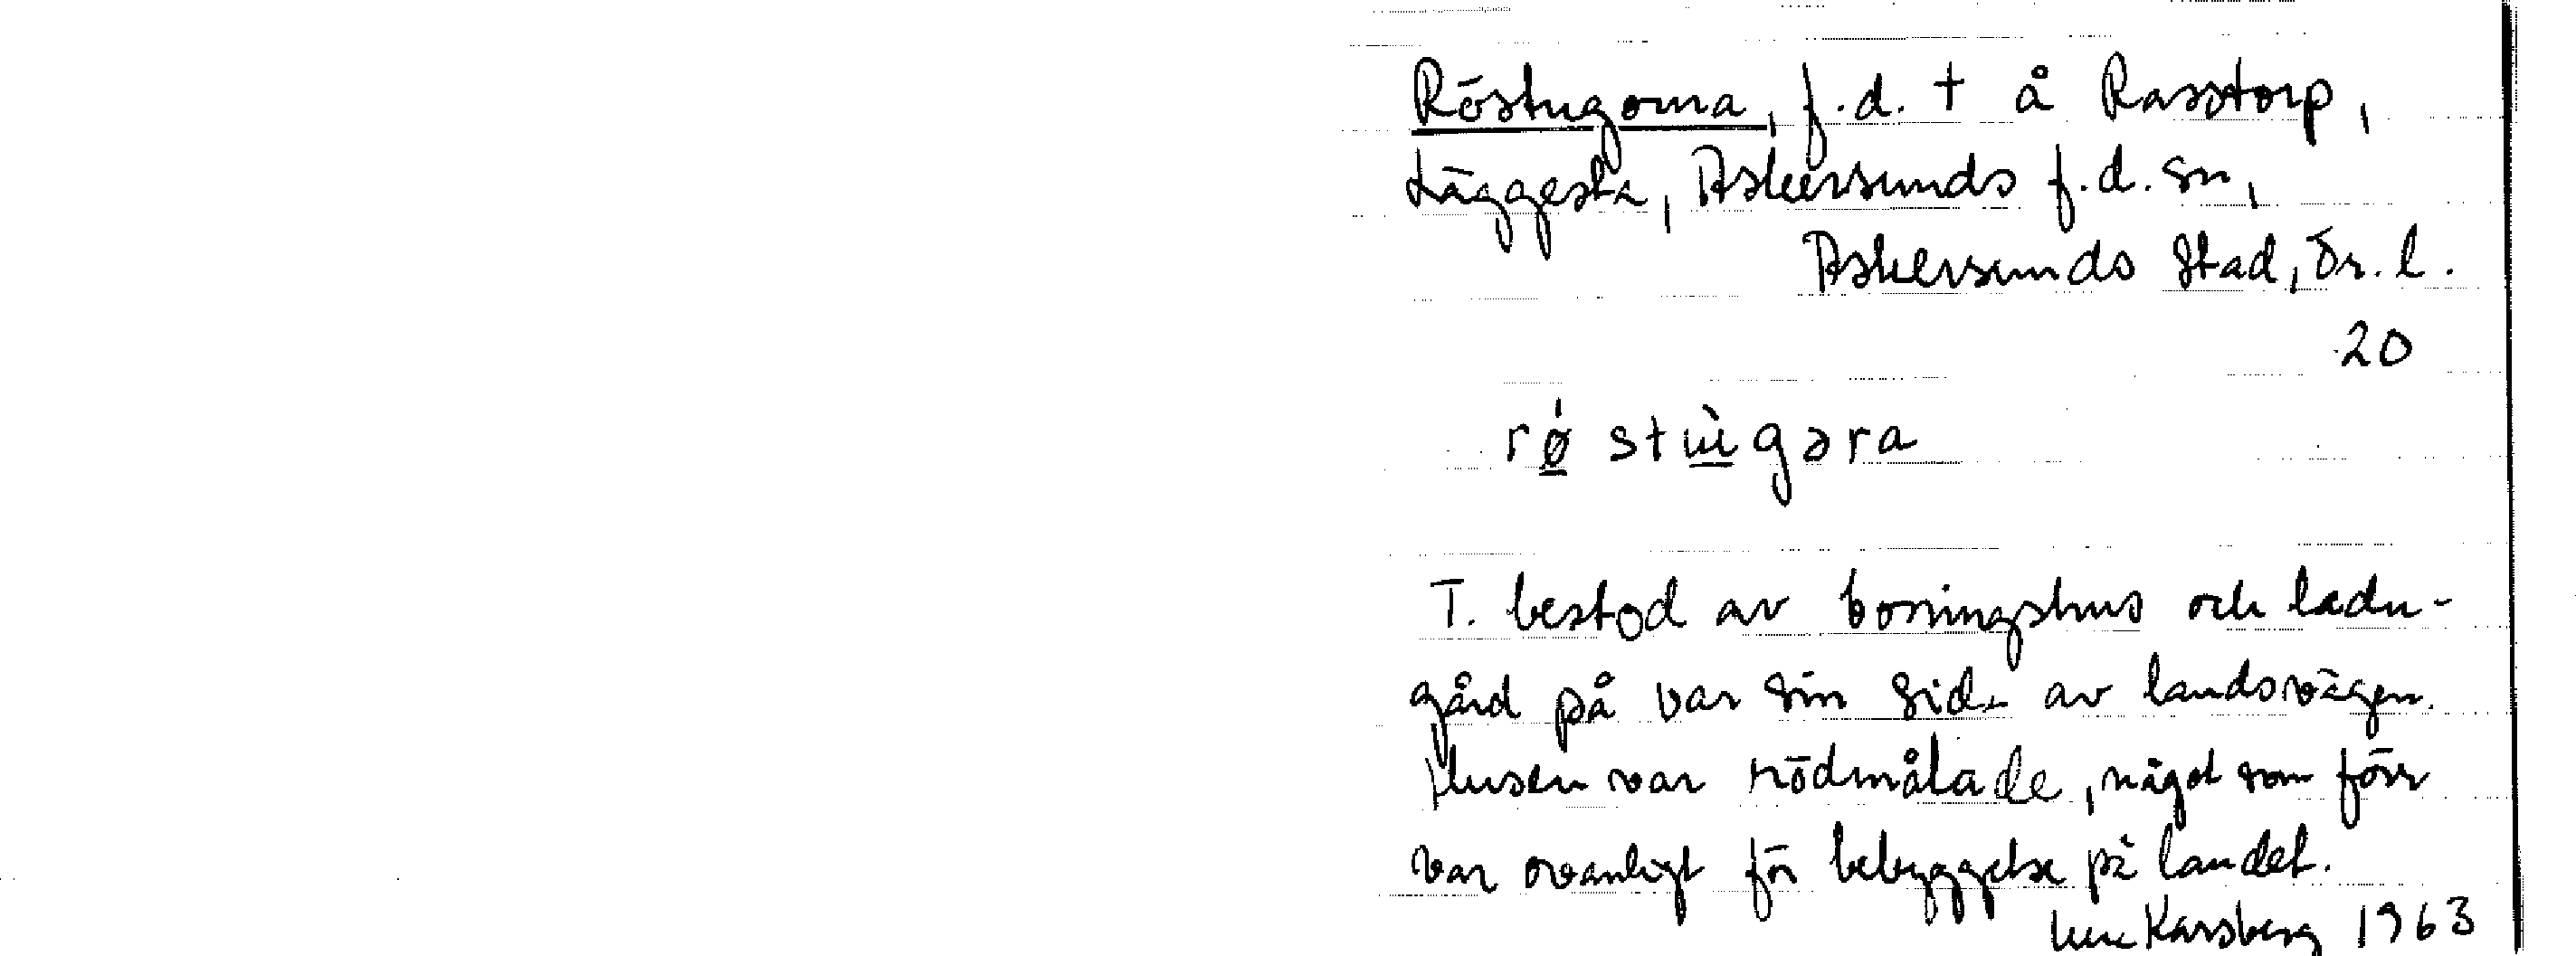 Röstugorna, f.d. t å Rasstorp,
Läggesta, Askersunds f.d. sn,
Askersunds stad, Ör. l.
20
rǿ stùgəra
T. bestod av boningshus och ladu-
gård på var sin sida av landsvägen.
Husen var rödmålade, något som förr
var ovanligt för bebyggelse på landet.
Karsberg 1963